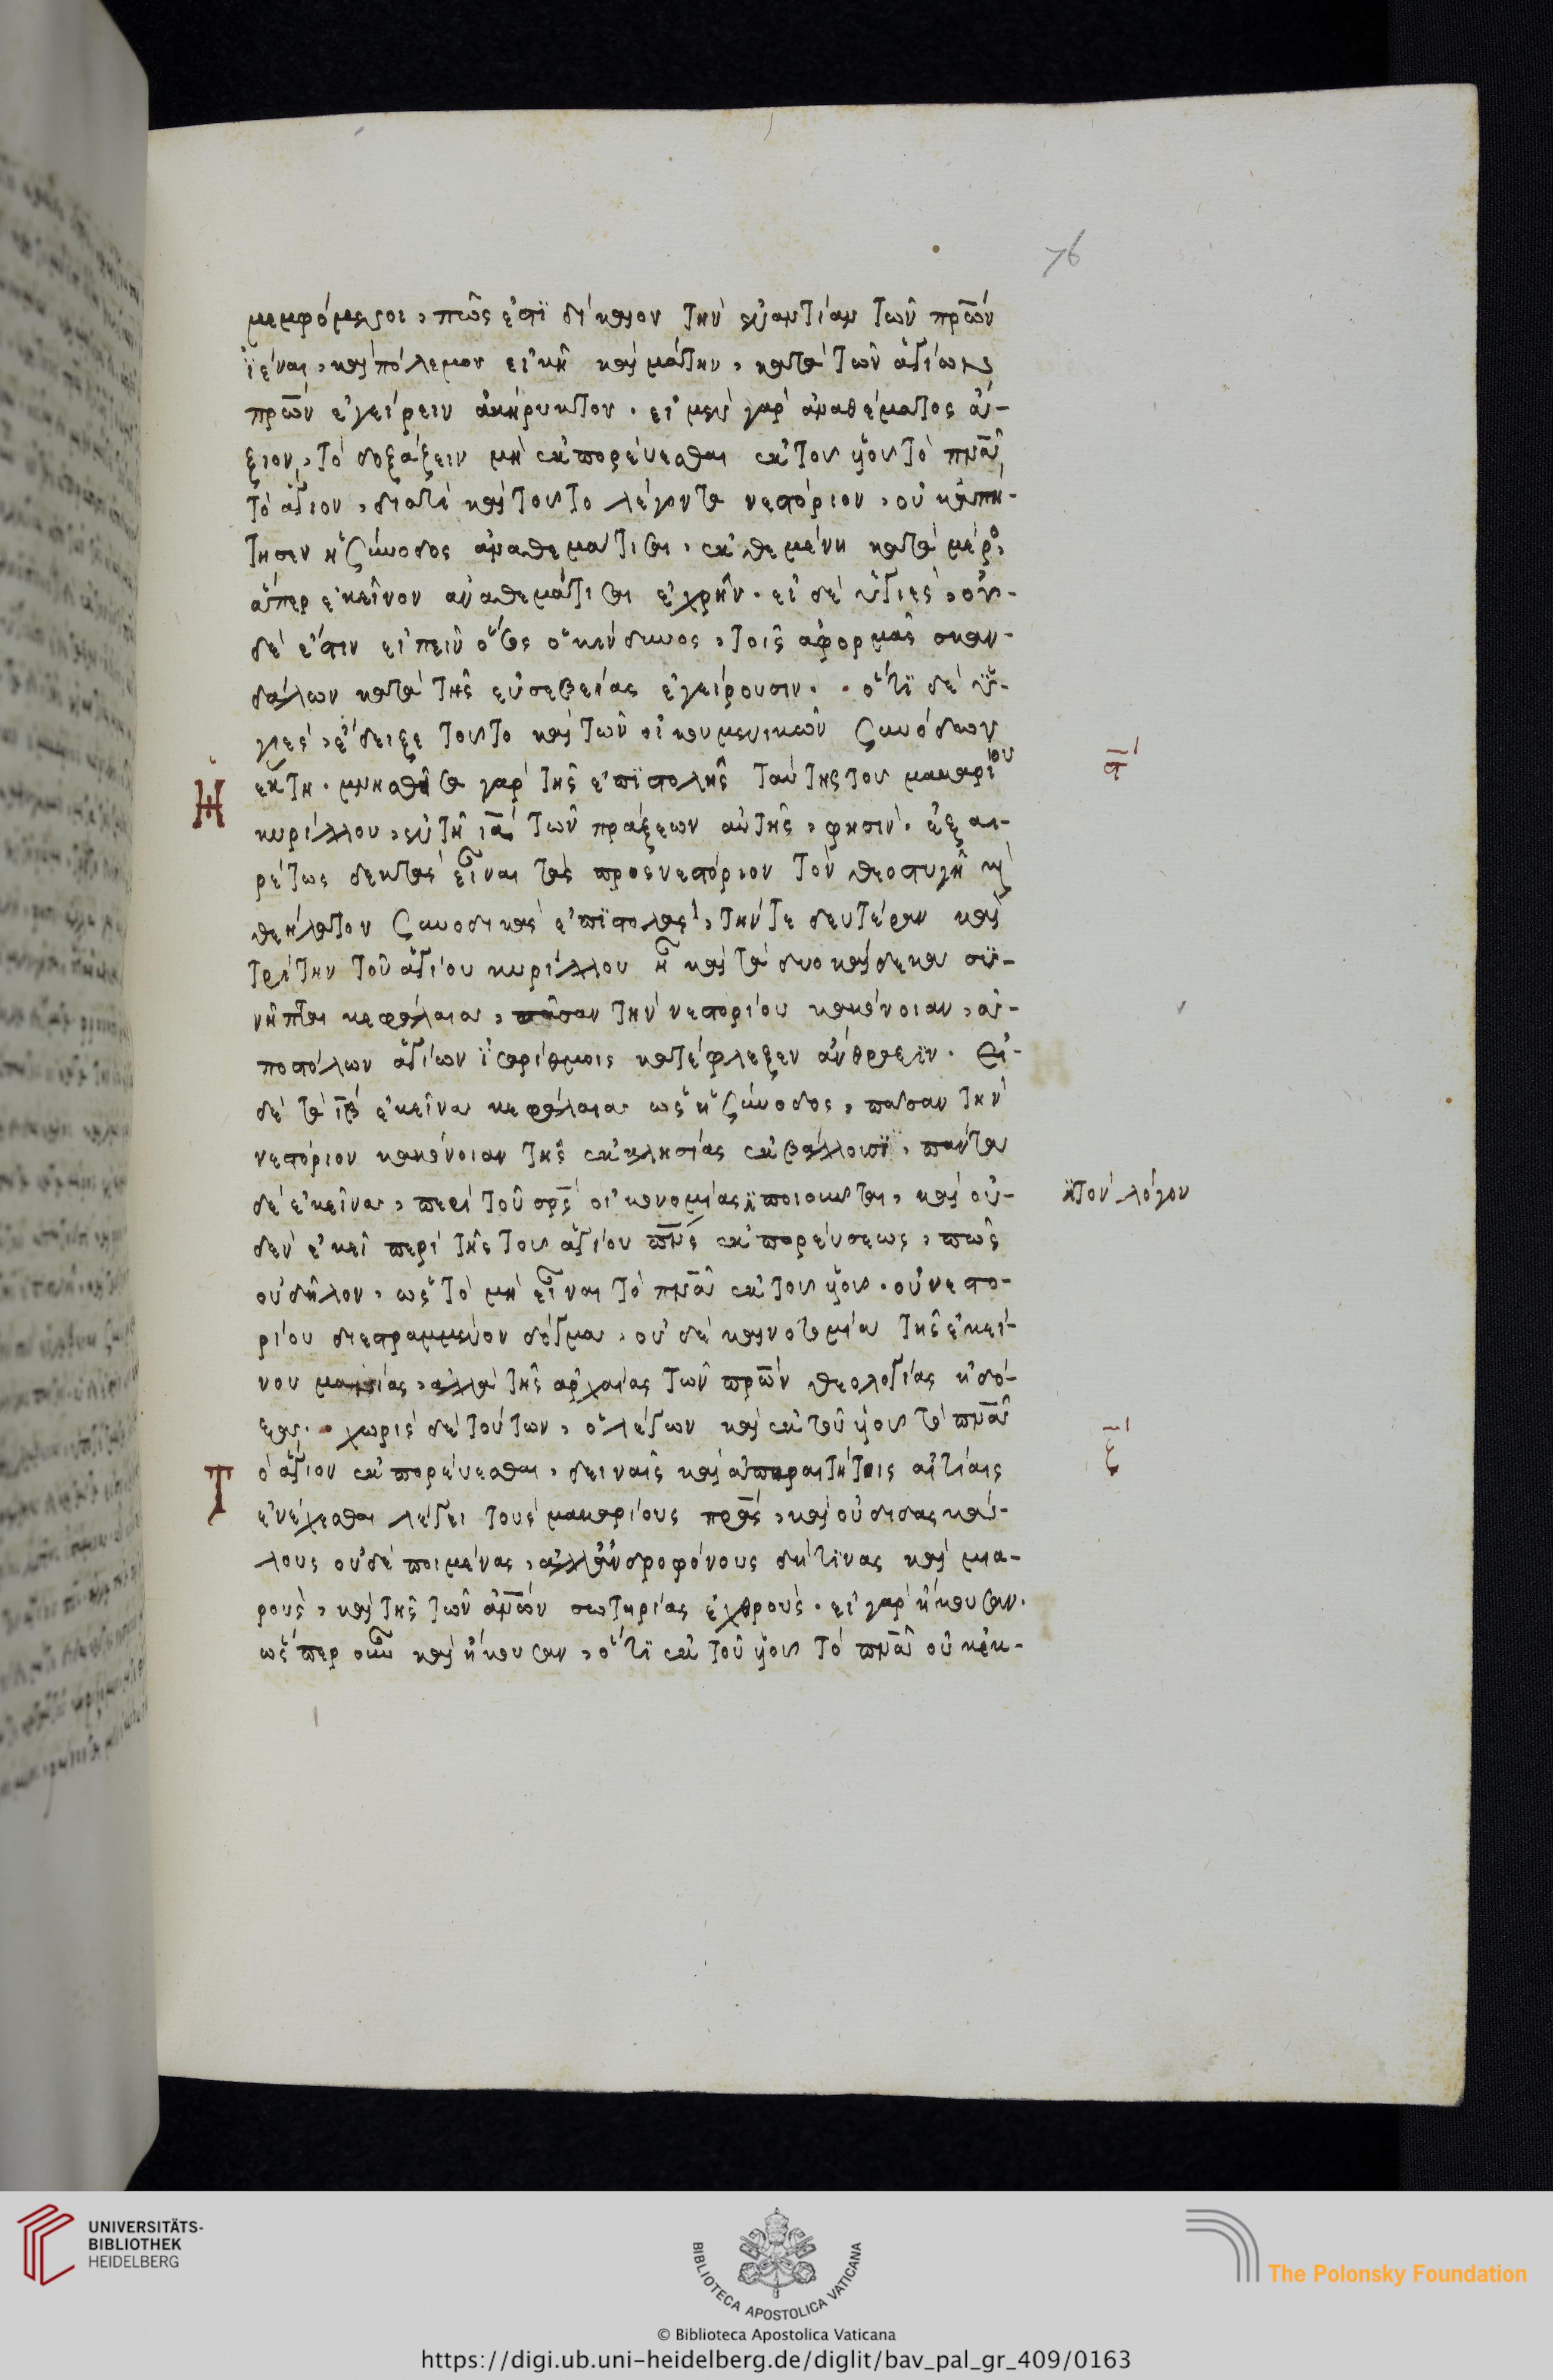 76
μεμφόμενοι, πῶς ἐστὶ δίκαιον τὴν ἐναντίαν τῶν πρων
ἰέναι, καὶ πόλεμον εἰκῆ καὶ μάτην, κατὰ τῶν ἁγίων
πρων ἐγείρειν ἀκήρυκτον. εἰ μὲν γὰρ ἀναθέματος ἄ-
ξιον, τὸ δοξάζειν μὴ ἐκπορεύεσθαι ἐκ τοῦ υἱοῦ τὸ πνα
τὸ ἅγιον, διατί καὶ τοῦτο λέγοντα νεστόριον, οὐκ ἀπή-
τησεν ἡ σύνοδος ἀναθεματίσαι, ἐκθεμένη κατὰ μέρο
ἅπερ ἐκεῖνον ἀναθεματίσαι ἐχρῆν. εἰ δὲ ὑγιὲς, οὐ-
δὲ ἔστιν εἰπεῖν ὅσος ὁ κίνδυνος, τοῖς ἀφορμὰς σκαν-
δάλων κατὰ τῆς εὐσεβείας ἐγείρουσιν. ὅτι δὲ ὑ-
γιὲς, ἔδειξε τοῦτο καὶ τῶν οἰκουμενικῶν συνόδων
Η
ἕκτη. μνησθεῖσα γὰρ τῆς ἐπιστολῆς ταύτης τοῦ μακαρίου
α
κυρίλλου, ἐν τῆ ια τῶν πράξεων αὐτῆς, φησὶν. ἐξαι-
ρέτως δεκτὰς εἶναι τὰς πρὸς νεστόριον τὸν θεοστυγῆ κ
θεήλατον συνοδικὰς ἐπιστολὰς, τήν τε δευτέραν καὶ
τρίτην τοῦ ἁγίου κυρίλλου ἧ καὶ τὰ δυοκαίδεκα συ-
νῆπται κεφάλαια, πᾶσαν τὴν νεστορίου κακόνοιαν, ἀ-
ποστόλων ἁγίων ἰσαρίθμοις κατέφλεξεν ἄνθραξιν. Εἰ
δὲ τὰ ιβ ἐκεῖνα κεφάλαια ὡς ἡ σύνοδος, πᾶσαν τὴν
νεστόριον κακόνοιαν τῆς ἐκκλησίας ἐκβάλλουσι, πάντα
δὲ ἐκεῖνα, περὶ τοῦ σρς οἰκονομίας ποιοῦνται, καὶ οὐ-
τὸν λόγον
δὲν ἐκεῖ περὶ τῆς τοῦ ἁγίου πνς ἐκπορεύσεως, πῶς
οὐ δῆλον, ὡς τὸ μὴ εἶναι τὸ πνα ἐκ τοῦ υἱοῦ. οὐ νεστο-
ρίου διεστραμμένον δόγμα, οὐδὲ καινοτομία τῆς ἐκεί-
νου μανίας, ἀλλὰ τῆς ἀρχαίας τῶν πρων θεολογίας ἡ δό-
ξα. χωρὶς δὲ τούτων, ὁ λέγων καὶ ἐκ τοῦ υἱοῦ τὸ πνα
Τ
ὸ ἅγιον ἐκπορεύεσθαι, δειναῖς καὶ ἀπαραιτήτοις αἰτίαις
ζ
ἐνέχεσθαι λέγει τοὺς μακαρίους πρας, καὶ οὐ διδασκά-
λους οὐδὲ ποιμένας, ἀλλ' ἀνδροφόνους δή τινας καὶ μια-
ροὺς, καὶ τῆς τῶν ἀνων σωτηρίας ἐχθροὺς. εἰ γὰρ ἤκουσαν.
ὥσπερ οὖν καὶ ἤκουσαν, ὅτι ἐκ τοῦ υἱοῦ τὸ πνα οὐκ ἐκ-
UNIVERSITÄTS-
BIBLIOTHEK
HEIDELBERG
BIBLIOTECA APOSTOLICA VATICANA
The Polonsky Foundation
© Biblioteca Apostolica Vaticana
https://digi.ub.uni-heidelberg.de/diglit/bav_pal_gr_409/0163